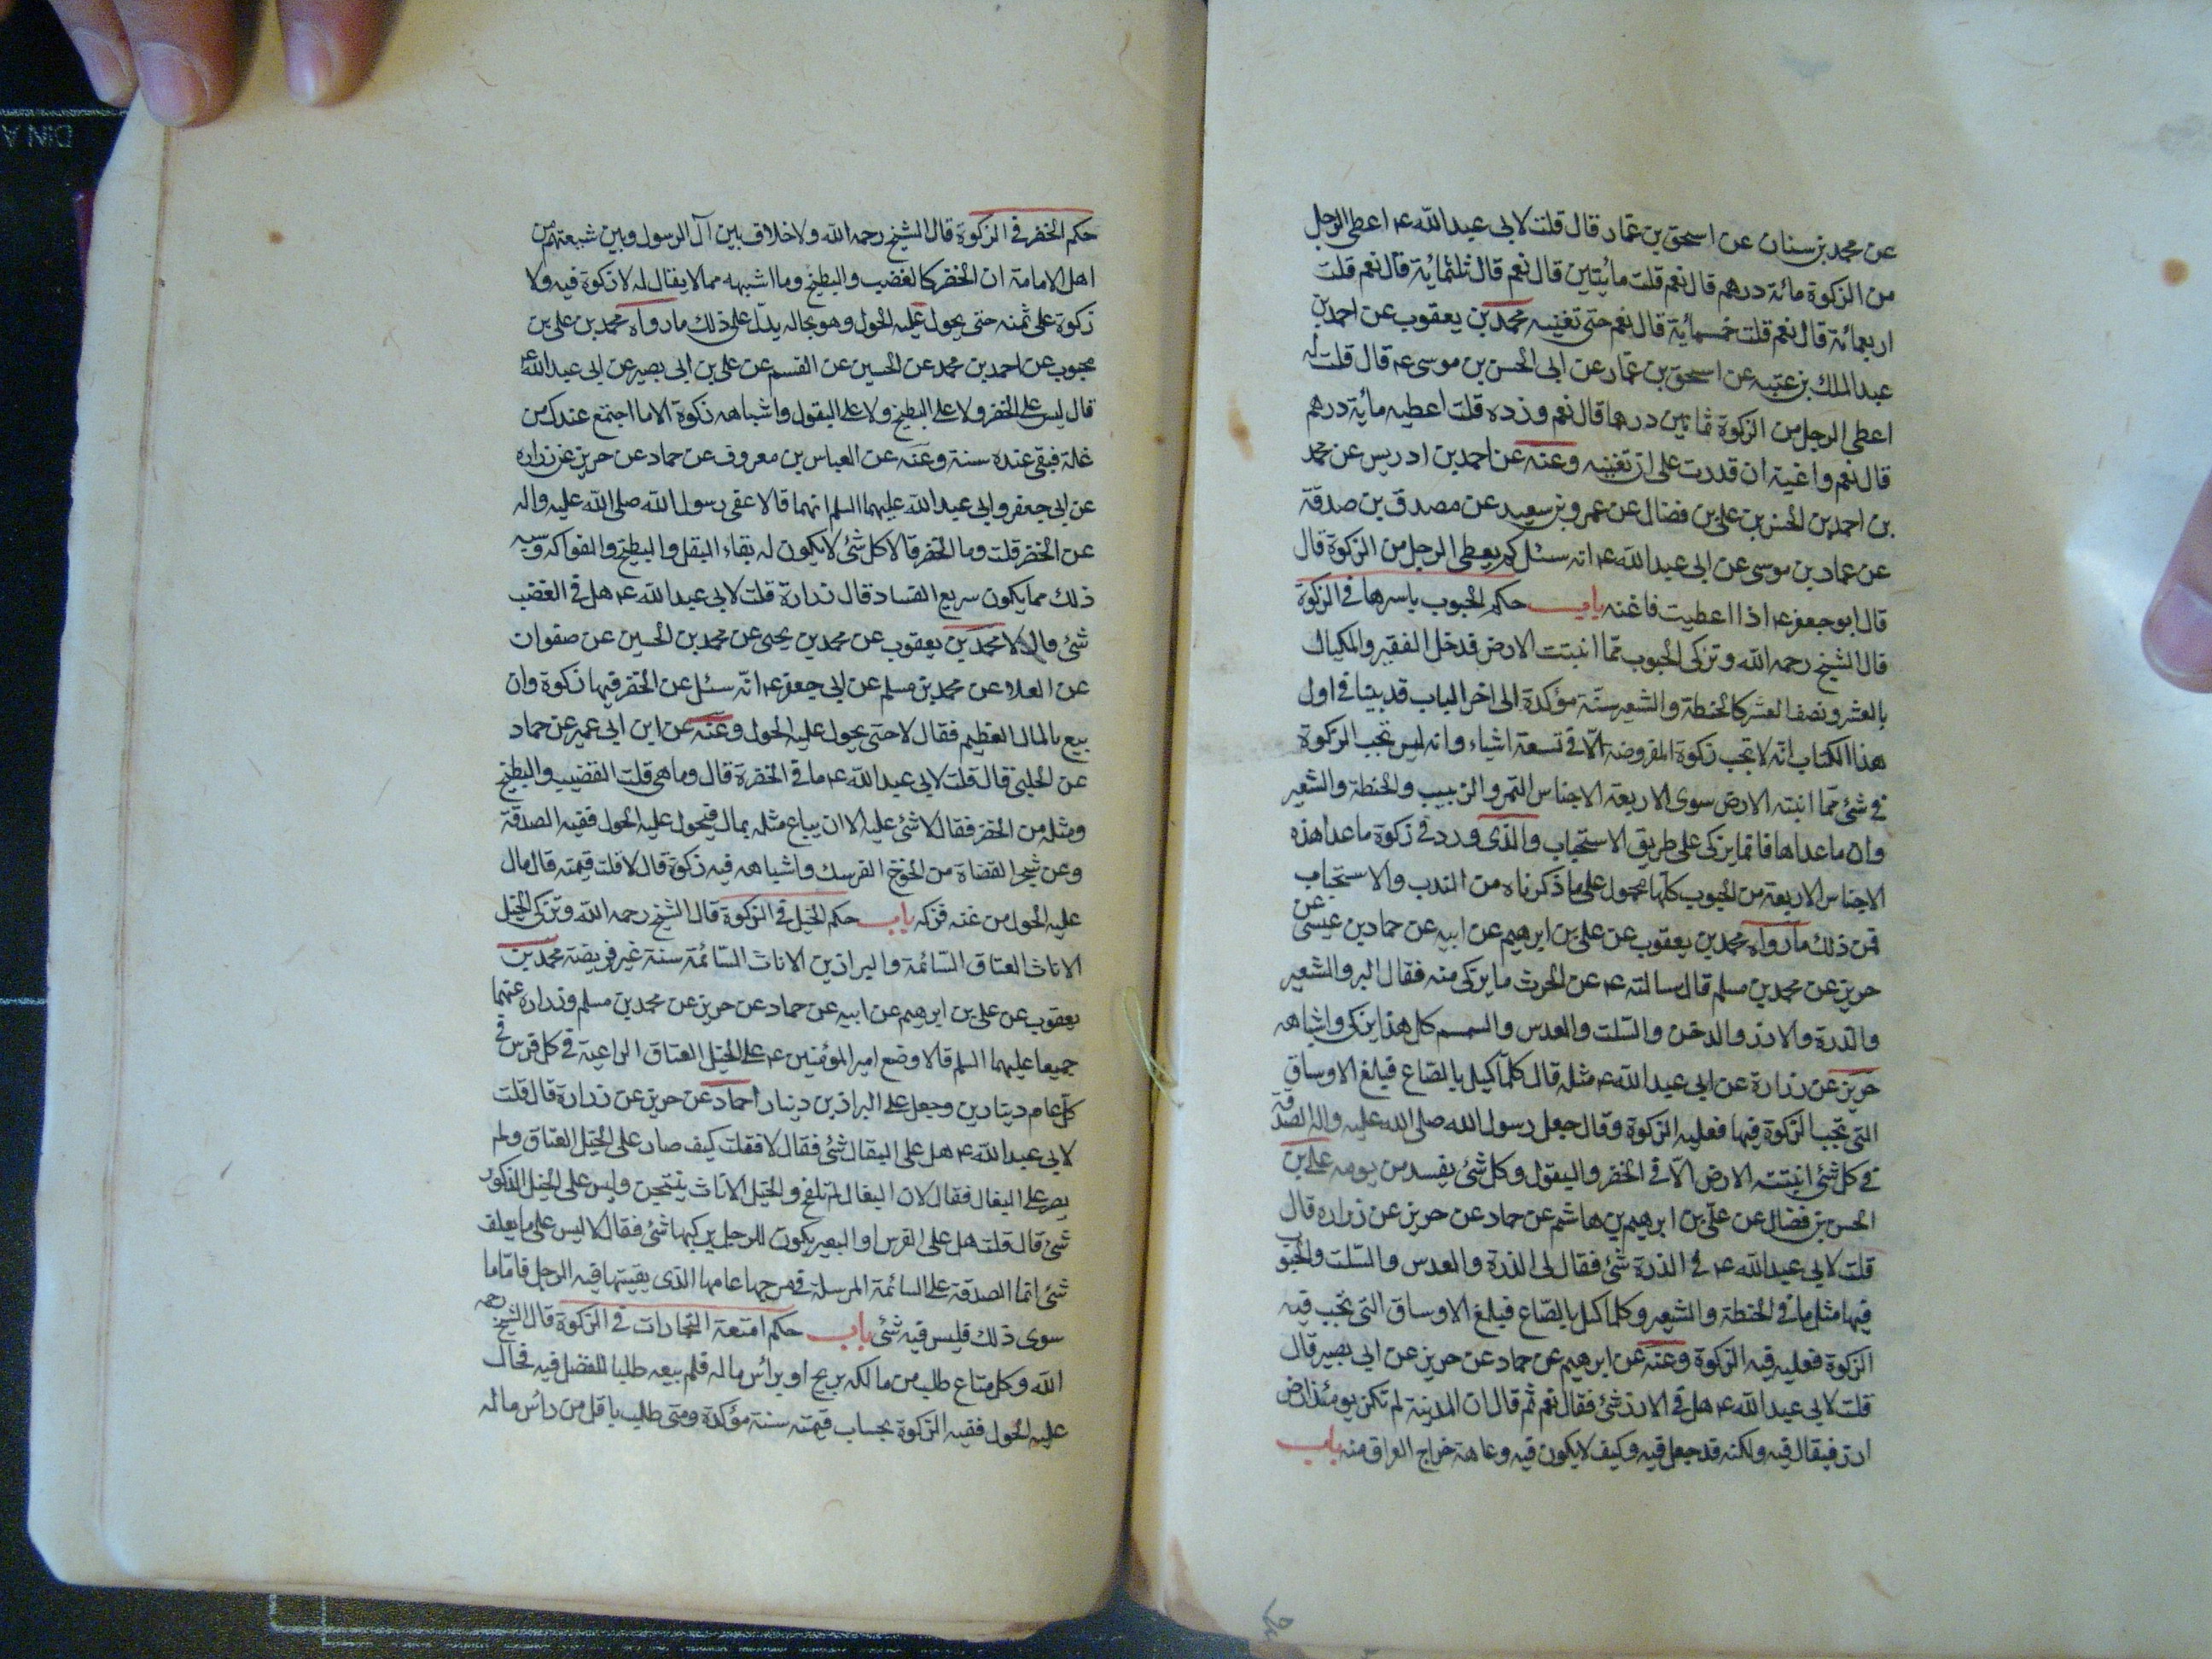 عن محمد بن سنان عن اسحق بن عمار قال قلت لابى عبد الله ع اعطى الرجل
من الزكوة مائة درهم قال نعم قلت مائتين قال نعم قال ثلثمائة قال نعم قلت
اربعمائة قال نعم قلت خمسمائة قال نعم حتى تغنيه محمد بن يعقوب عن احمد بن
عبد الملك بن عتبه عن اسحق بن عمار عن ابى الحسن بن موسى ع قال قلت له
اعطى الرجل من الزكوة ثمانين درهما قال نعم وزده قلت اعطيه مائة درهم
قال نعم واغنه ان قدرت على ان تغنيه وعنه عن احمد بن ادريس عن محمد
بن احمد بن الحسن بن على بن فضال عن عمرو بن سعيد عن مصدق بن صدقة
عن عمار بن موسى عن ابى عبد الله ع انه سئل كم يعطى الرجل من الزكوة قال
قال ابو جعفر ع اذا اعطيت فاغنه باب حكم الحبوب باسرها فى الزكوة
قال الشيخ رحمه الله وتزكى الحبوب مما انبتت الارض فدخل القفيز والمكيال
بالعشر ونصف العشر كالحنطة والشعير سنة مؤكدة الى اخر الباب قد بينا فى اول
هذا الكتاب انه لا تجب زكوة المفروضة الا فى تسعة اشياء وانه ليس تجب الزكوة
فى شئ مما انبته الارض سوى الاربعة الاجناس التمر والزبيب والحنطة والشعير
وان ما عداها فانما يزكى على طريق الاستحباب والذى ورد فى زكوة ما عدا هذه
الاجناس الاربعة من الحبوب كلها محمول على ما ذكرناه من الندب والاستحباب
فمن ذلك ما رواه محمد بن يعقوب عن على بن ابرهيم عن ابيه عن حماد بن عيسى عن
حريز عن محمد بن مسلم قال سالته ع عن الحرث ما يزكى منه فقال البر والشعير
والذرة والارز والدخن والسلت والعدس والسمسم كل هذا يزكى واشباهه
حريز عن زرارة عن ابى عبد الله ع مثله قال كلما كيل بالصاع فبلغ الاوساق
التى تجب الزكوة فيها فعليه الزكوة وقال جعل رسول الله صلى الله عليه واله الصدقة
فى كل شئ انبتت الارض الا فى الخضر والبقول وكل شئ يفسد من يومه على بن
الحسن بن فضال عن على بن ابرهيم بن هاشم عن حماد عن حريز عن زراره قال
قلت لابى عبد الله ع فى الذرة شئ فقال لى الذرة والعدس والسلت والحبوب
فيها مثل ما فى الحنطة والشعير وكلما كيل بالصاع فبلغ الاوساق التى تجب فيه
الزكوة فعليه فيه الزكوة وعنه عن ابرهيم عن حماد عن حريز عن ابى بصير قال
قلت لابى عبد الله ع هل فى الارز شئ فقال نعم ثم قال ان المدينة لم تكن يومئذ ارض
ارز فيقال فيه ولكنه قد جعل فيه وكيف لا يكون فيه وعامة خراج العراق منه باب
حكم الخضر فى الزكوة قال الشيخ رحمه الله ولا خلاف بين آل الرسول وبين شيعتهم من
اهل الامامة ان الخضر كالقضب والبطيخ وما اشبهه مما لا يقال له لا زكوة فيه ولا
زكوة على ثمنه حتى يحول عليه الحول وهو بحاله يدل على ذلك ما رواه محمد بن على بن
محبوب عن احمد بن محمد عن الحسين عن القسم عن على بن ابى بصير عن ابى عبد الله ع
قال ليس على الخضر ولا على البطيخ ولا على البقول واشباهه زكوة الا ما اجتمع عندك من
غلة فبقى عنده سنة وعنه عن العباس بن معروف عن حماد عن حريز عن زراره
عن ابى جعفر وابى عبد الله عليهما السلم انهما قالا عفى رسول الله صلى الله عليه واله
عن الخضر قلت وما الخضر قالا كل شئ لا يكون له بقاء البقل والبطيخ والفواكه وشبه
ذلك مما يكون سريع الفساد قال زرارة قلت لابى عبد الله ع هل فى القضب
شئ قال لا محمد بن يعقوب عن محمد بن يحيى عن محمد بن الحسين عن صفوان
عن العلا عن محمد بن مسلم عن ابى جعفر ع انه سئل عن الخضر فيها زكوة وان
بيع بالمال العظيم فقال لا حتى يحول عليه الحول وعنه عن ابن ابى عمير عن حماد
عن الحلبى قال قلت لابى عبد الله ع ما فى الخضرة قال وما هى قلت القضب والبطيخ
ومثله من الخضر فقال لا شئ عليه الا ان يباع مثله بمال فيحول عليه الحول ففيه الصدقة
وعن شجر القضاة من الخوخ الفرسك واشباهه فيه زكوة قال لا قلت قيمته قال مال
عليه الحول من غنه فزكه باب حكم الخيل فى الزكوة قال الشيخ رحمه الله وتزكى الخيل
الاناث العتاق السائمة والبراذين الاناث السائمة سنة غير فريضة محمد بن
يعقوب عن على بن ابرهيم عن ابيه عن حماد عن حريز عن محمد بن مسلم وزراره عنهما
جميعا عليهما السلم قالا وضع امير المؤمنين ع على الخيل العتاق الراعية فى كل فرس فى
كل عام دينارين وجعل على البراذين دينار احماد عن حريز عن زرارة قال قلت
لابى عبد الله ع هل على البغال شئ فقال لا فقلت كيف صار على الخيل العتاق ولم
يصر على البغال فقال لان البغال لم تلقح والخيل الاناث ينتجن وليس على الخيل الذكور
شئ قال قلت هل على الفرس او البعير يكون للرجل يركبها شئ فقال لا ليس على ما يعلف
شئ انما الصدقة على السائمة المرسلة فى مرجها عامها الذى يقيتنها فيه الرجل فاما ما
سوى ذلك فليس فيه شئ باب حكم امتعة التجارات فى الزكوة قال الشيخ رحمه
الله وكل متاع طلب من مالكه بربح او براس ماله فلم يبعه طلبا للفضل فيه فحال
عليه الحول ففيه الزكوة بحساب قيمته سنة مؤكدة ومتى طلب باقل من راس ماله